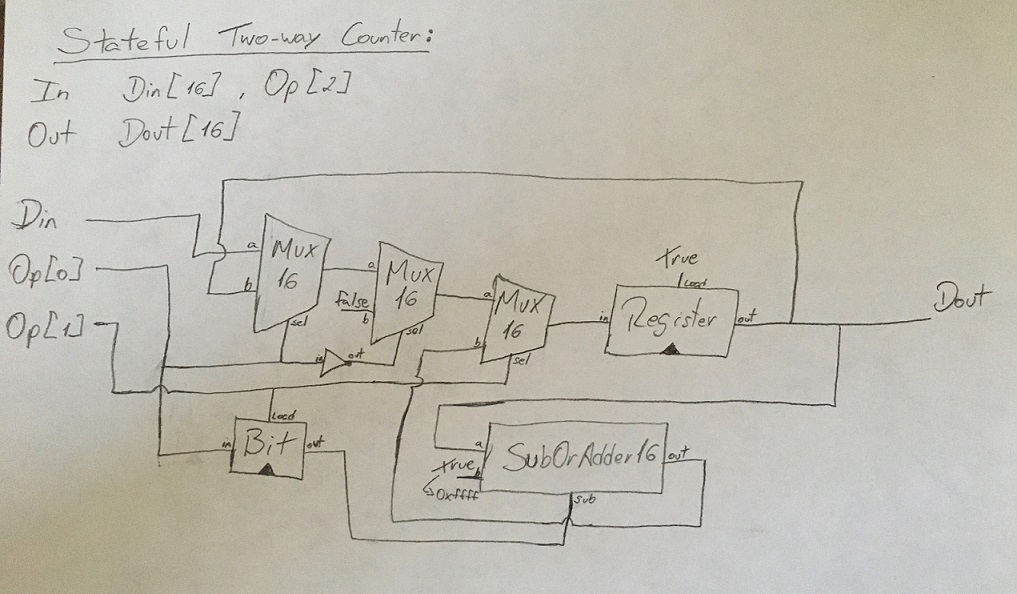 Stateful Two-way Counter:
In Din[16], Op[2]
Out Dout[16]
Din
Op[0]
Op[1]
a
b
Mux
16
sel
a
false
b
Mux
16
sel
in
out
a
b
Mux
16
sel
true
Load
in
Register
out
Dout
Load
in
Bit
out
a
true
b
0xffff
SubOrAdder16
out
sub